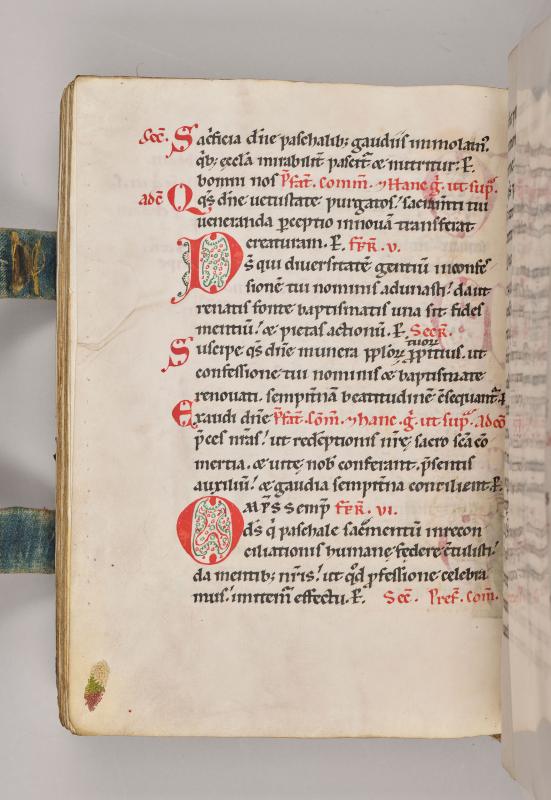 Sec̄. Sacͥficia dn̄e paschalib; gaudiis immolam᷒.
qͥb; eccl̄a mirabilit̄ pascit̄ & nutritur. P̱.
bonū nos Pfat̄. comm̄. ⁊ Hanc g̊. ut supͣ.
adcō Qs̄ dn̄e uetustate purgatos / sacͣmti tui
ueneranda ꝑceptio in nouā transferat
creaturam. P̱. Fr̄R̄. v.
Ds̄ qui diuersitatē gentiū in confes
sionē tui nominis adunasti / da ut
renatis fonte baptismatis una sit fides
mentiū / & pietas actionū. P̱. Secr̄.
Suscipe qs̄ dn̄e munera pplōꝝ tuoꝝ ꝓpitius. ut
confessione tui nominis & baptismate
renouati. sempit̄nā beatitudinē c̄sequant᷒. P̱
Exaudi dn̄e Pfat̄. cōm̄. ⁊ hanc g̊. ut supͣ. ad cō
p̄ces nr̄as / ut redēptionis nr̄ę sacro sc̄a cō
mertia. & uitę nob̄ conferant. p̄sentis
auxiliū / & gaudia sempit̄na concilient. P̱.
Omp̄s semp̄ Fr̄R̄. vi.
ds̄ qͥ paschale sacͣmentū in recon
ciliationis humanę federe c̄tulisti /
da mentib; nr̄is / ut qd̄ ꝓfessione celebra
mus / imitem᷒ effectu. P̱. Sec̄. Pref̄. com̄.